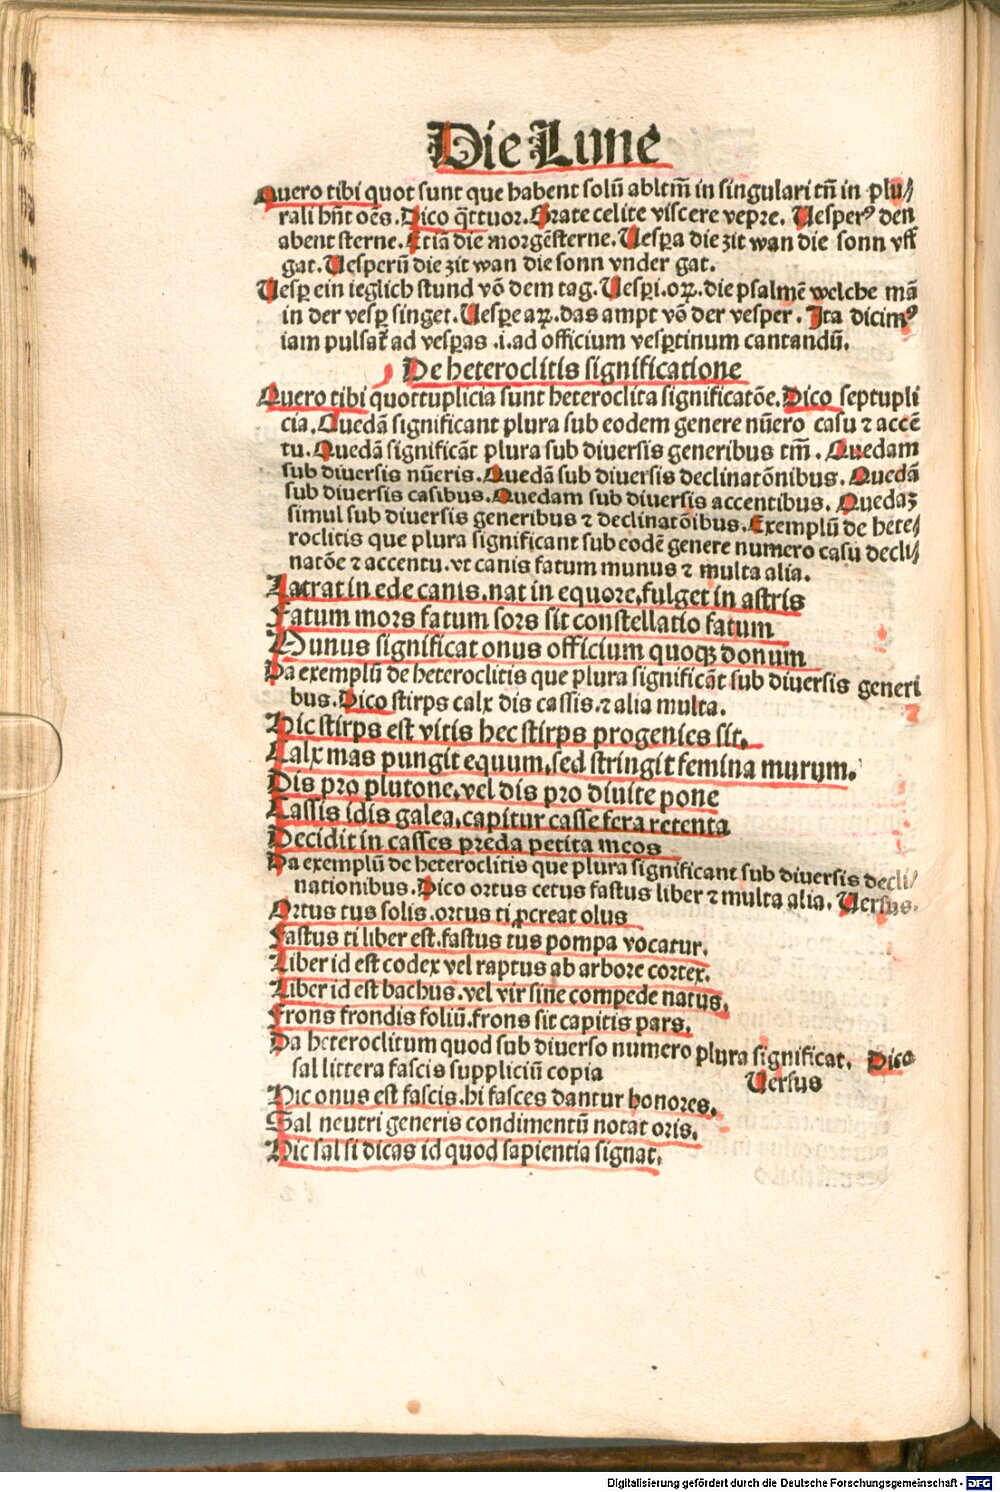 Die Lune
Quero tibi quot sunt que habent solū abltm̄ in singulari tn̄ in plu⸗
rali hn̄t oēs. Dico q̄ttuor. Grate celite viscere vepre. Uesperꝰ den
abent sterne. Etiā die morgēsterne. Uesꝑa die zit wan die sonn vff
gat. Uesperū die zit wan die sonn vnder gat.
Uesꝑ ein ieglich stund vō dem tag. Uesꝑi.oꝝ. die psalmē welche mā
in der vesꝑ singet. Uesꝑe aꝝ. das ampt vō der vesper. Ita dicimꝰ
iam pulsat̄ ad vesꝑas .i. ad officium vesꝑtinum cantandū.
De heteroclitis significatione
Quero tibi quottuplicia sunt heteroclita significatōe. Dico septupli
cia. Quedā significant plura sub eodem genere nūero casu ⁊ accē
tu. Quedā significāt plura sub diuersis generibus tm̄. Quedam
sub diuersis nūeris. Quedā sub diuersis declinatōnibus. Quedā
sub diuersis casibus. Quedam sub diuersis accentibus. Quedaꝫ
simul sub diuersis generibus ⁊ declinatōibus. Exemplū de hete⸗
roclitis que plura significant sub eodē genere numero casu decli⸗
natōe ⁊ accentu. vt canis fatum munus ⁊ multa alia.
Latrat in ede canis. nat in equore, fulget in astris
Fatum mors fatum sors sit constellatio fatum
Munus significat onus officium quoqꝫ donum
Da exemplū de heteroclitis que plura significāt sub diuersis generi
bus. Dico stirps calx dis cassis. ⁊ alia multa.
Hic stirps est vitis hec stirps progenies sit.
Calx mas pungit equum, sed stringit femina murum.
Dis pro plutone, vel dis pro diuite pone
Cassis idis galea, capitur casse fera retenta
Decidit in casses preda petita meos
Da exemplū de heteroclitis que plura significant sub diuersis decli⸗
nationibus. Dico ortus cetus fastus liber ⁊ multa alia. Uersus.
Ortus tus solis. ortus ti ꝓcreat olus
Fastus ti liber est. fastus tus pompa vocatur.
Liber id est codex vel raptus ab arbore cortex.
Liber id est bachus. vel vir sine compede natus.
Frons frondis foliū. frons sit capitis pars.
Da heteroclitum quod sub diuerso numero plura significat. Dico
sal littera fascis suppliciū copia Uersus
Hic onus est fascis. hi fasces dantur honores.
Sal neutri generis condimentū notat oris.
Hic sal si dicas id quod sapientia signat.
Digitalisierung gefördert durch die Deutsche Forschungsgemeinschaft - DFG